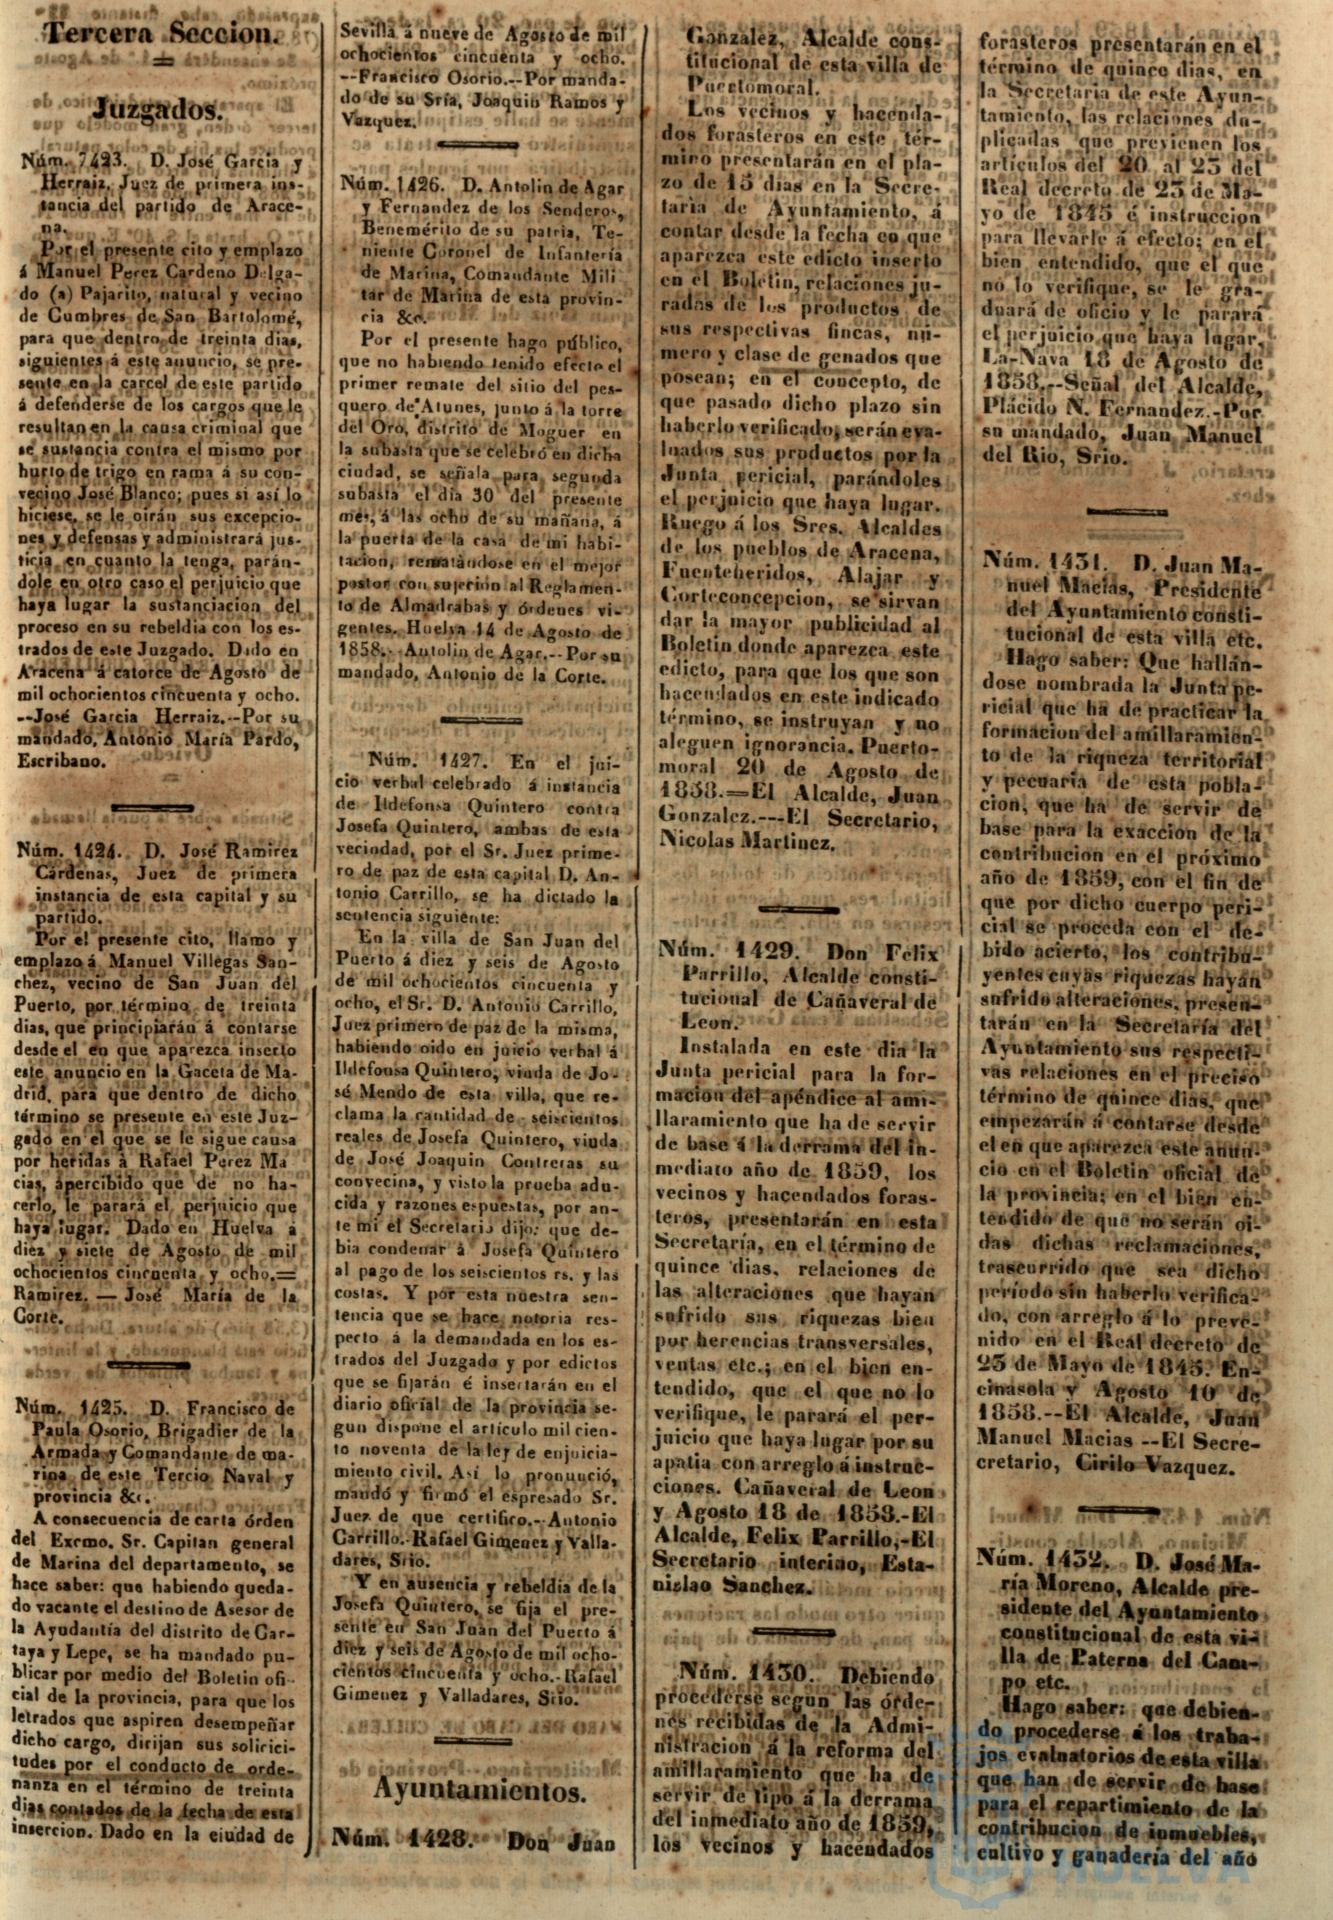 Tercera Seccion.
Juzgados.
Núm. 7423. D. José Garcia y
Herraiz, Juez de primera ins-
tancia del partido de Arace-
na.
Por el presente cito y emplazo
á Manuel Perez Cardeno Delga-
do (a) Pajarito, natural y vecino
de Cumbres de San Bartolomé,
para que dentro de treinta dias,
siguientes á este anuncio, se pre-
sente en la carcel de este partido
á defenderse de los cargos que le
resultan en la causa criminal que
se sustancia contra el mismo por
hurto de trigo en rama á su con-
vecino José Blanco; pues si así lo
hiciese, se le oirán sus excepcio-
nes y defensas y administrará jus-
ticia en cuanto la tenga, parán-
dole en otro caso el perjuicio que
haya lugar la sustanciacion del
proceso en su rebeldia con los es-
trados de este Juzgado. Dado en
Aracena á catorce de Agosto de
mil ochocientos cincuenta y ocho.
--José Garcia Herraiz.--Por su
mandado, Antonio María Pardo,
Escribano.
Núm. 1424. D. José Ramirez
Cárdenas, Juez de primera
instancia de esta capital y su
partido.
Por el presente cito, llamo y
emplazo á Manuel Villegas San-
chez, vecino de San Juan del
Puerto, por término de treinta
dias, que principiarán á contarse
desde el en que aparezca inserto
este anuncio en la Gaceta de Ma-
drid, para que dentro de dicho
término se presente en este Juz-
gado en el que se le sigue causa
por heridas á Rafael Perez Ma
cias, apercibido que de no ha-
cerlo, le parará el perjuicio que
haya lugar. Dado en Huelva á
diez y siete de Agosto de mil
ochocientos cincuenta y ocho.=
Ramirez. — José María de la
Corte.
Núm. 1425. D. Francisco de
Paula Osorio, Brigadier de la
Armada y Comandante de ma-
rina de este Tercio Naval y
provincia &c.
A consecuencia de carta órden
del Excmo. Sr. Capitan general
de Marina del departamento, se
hace saber: que habiendo queda-
do vacante el destino de Asesor de
la Ayudantía del distrito de Car-
taya y Lepe, se ha mandado pu-
blicar por medio del Boletin ofi-
cial de la provincia, para que los
letrados que aspiren desempeñar
dicho cargo, dirijan sus solirici-
tudes por el conducto de orde-
nanza en el término de treinta
dias contados de la fecha de esta
insercion. Dado en la ciudad de
Sevilla á nueve de Agosto de mil
ochocientos cincuenta y ocho.
--Francisco Osorio.--Por manda-
do de su Sría, Joaquin Ramos y
Vazquez.
Núm. 1426. D. Antolin de Agar
y Fernandez de los Senderos,
Benemérito de su patria, Te-
niente Coronel de Infantería
de Marina, Comandante Mili
tar de Marina de esta provin-
cia &c.
Por el presente hago público,
que no habiendo tenido efecto el
primer remate del sitio del pes-
quero de Atunes, junto á la torre
del Oro, distrito de Moguer en
la subasta que se celebró en dicha
ciudad, se señala para segunda
subasta el dia 30 del presente
mes, á las ocho de su mañana, á
la puerta de la casa de mi habi-
tacion, rematándose en el mejor
postor con sujecion al Reglamen-
to de Almadrabas y órdenes vi-
gentes. Huelva 14 de Agosto de
1858.--Antolin de Agar.--Por su
mandado, Antonio de la Corte.
Núm. 1427. En el jui-
cio verbal celebrado á instancia
de Ildefonsa Quintero contra
Josefa Quintero, ambas de esta
veciodad, por el Sr. Juez prime-
ro de paz de esta capital D. An-
tonio Carrillo, se ha dictado la
sentencia siguiente:
En la villa de San Juan del
Puerto á diez y seis de Agosto
de mil ochocientos cincuenta y
ocho, el Sr. D. Antonio Carrillo,
Juez primero de paz de la misma,
habiendo oido en juicio verbal á
Ildefonsa Quintero, viuda de Jo-
sé Mendo de esta villa, que re-
clama la cantidad de seiscientos
reales de Josefa Quintero, viuda
de José Joaquin Contreras su
convecina, y visto la prueba adu-
cida y razones espuestas, por an-
te mi el Secretario dijo: que de-
bia condenar á Josefa Quintero
al pago de los seiscientos rs. y las
costas. Y por esta nuestra sen-
tencia que se hace notoria res-
pecto á la demandada en los es-
trados del Juzgado y por edictos
que se fijarán é insertarán en el
diario oficial de la provincia se-
gun dispone el artículo mil cien-
to noventa de la ley de enjuicia-
miento civil. Así lo pronunció,
mandó y firmó el espresado Sr.
Juez de que certifico.--Antonio
Carrillo.-Rafael Gimenez y Valla-
dares, Srio.
Y en ausencia y rebeldia de la
Josefa Quintero, se fija el pre-
sente en San Juan del Puerto á
diez y seis de Agosto de mil ocho-
cientos cincuenta y ocho.-Rafael
Gimenez y Valladares, Srio.
Ayuntamientos.
Núm. 1428. Don Juan
Gonzalez, Alcalde cons-
titucional de esta villa de
Puertomoral.
Los vecinos y hacenda-
dos forasteros en este tér-
mino presentarán en el pla-
zo de 15 dias en la Secre-
taría de Ayuntamiento, á
contar desde la fecha en que
aparezca este edicto inserto
en el Boletin, relaciones ju-
radas de los productos de
sus respectivas fincas, nú-
mero y clase de genados que
posean; en el concepto, de
que pasado dicho plazo sin
haberlo verificado, serán eva-
luados sus productos por la
Junta pericial, parándoles
el perjuicio que haya lugar.
Ruego á los Sres. Alcaldes
de los pueblos de Aracena,
Fuenteheridos, Alajar y
Corteconcepcion, se sirvan
dar la mayor publicidad al
Boletin donde aparezca este
edicto, para que los que son
hacendados en este indicado
término, se instruyan y no
aleguen ignorancia. Puerto-
moral 20 de Agosto de
1858.=El Alcalde, Juan
Gonzalez.---El Secretario,
Nicolas Martinez.
Núm. 1429. Don Felix
Parrillo, Alcalde consti-
tucional de Cañaveral de
Leon.
Instalada en este dia la
Junta pericial para la for-
macion del apéndice al ami-
llaramiento que ha de servir
de base á la derrama del in-
mediato año de 1859, los
vecinos y hacendados foras-
teros, presentarán en esta
Secretaría, en el término de
quince dias, relaciones de
las alteraciones que hayan
sufrido sus riquezas bien
por herencias transversales,
ventas etc.; en el bien en-
tendido, que el que no lo
verifique, le parará el per-
juicio que haya lugar por su
apatia con arreglo á instruc-
ciones. Cañaveral de Leon
y Agosto 18 de 1858.-El
Alcalde, Felix Parrillo,-El
Secretario interino, Esta-
nislao Sanchez.
Núm. 1430. Debiendo
procederse segun las órde-
nes recibidas de la Admi-
nistracion á la reforma del
amillaramiento que ha de
servir de tipo á la derrama
del inmediato año de 1859,
los vecinos y hacendados
forasteros presentarán en el
término de quince dias, en
la Secretaría de este Ayun-
tamiento, las relaciones du-
plicadas que previenen los
artículos del 20 al 25 del
Real decreto de 23 de Ma-
yo de 1845 é instruccion
para llevarle á efecto; en el
bien entendido, que el que
no lo verifique, se le gra-
duará de oficio y le parará
el perjuicio que haya lugar.
La-Nava 18 de Agosto de
1858.--Señal del Alcalde,
Plácido N. Fernandez.-Por
su mandado, Juan Manuel
del Rio, Srio.
Núm. 1431. D. Juan Ma-
nuel Macías, Presidente
del Ayuntamiento consti-
tucional de esta villa etc.
Hago saber: Que hallán-
dose nombrada la Junta pe-
ricial que ha de practicar la
formacion del amillaramien-
to de la riqueza territorial
y pecuaria de esta pobla-
cion, que ha de servir de
base para la exaccion de la
contribucion en el próximo
año de 1859, con el fin de
que por dicho cuerpo peri-
cial se proceda con el de-
bido acierto, los contribu-
yentes cuyas riquezas hayan
sufrido alteraciones, presen-
tarán en la Secretaría del
Ayuntamiento sus respecti-
vas relaciones en el preciso
término de quince dias, que
empezarán á contarse desde
el en que aparezca este anun-
cio en el Boletin oficial de
la provincia; en el bien en-
tendido de que no serán oi-
das dichas reclamaciones,
trascurrido que sea dicho
período sin haberlo verifica-
do, con arreglo á lo preve-
nido en el Real decreto de
23 de Mayo de 1845. En-
cinasola y Agosto 10 de
1858.--El Alcalde, Juan
Manuel Macias --El Secre-
cretario, Cirilo Vazquez.
Núm. 1432. D. José Ma-
ría Moreno, Alcalde pre-
sidente del Ayuntamiento
constitucional de esta vi-
lla de Paterna del Cam-
po etc.
Hago saber: que debien-
do procederse á los traba-
jos evaluatorios de esta villa
que han de servir de base
para el repartimiento de la
contribucion de inmuebles,
cultivo y ganadería del año
HUELVA